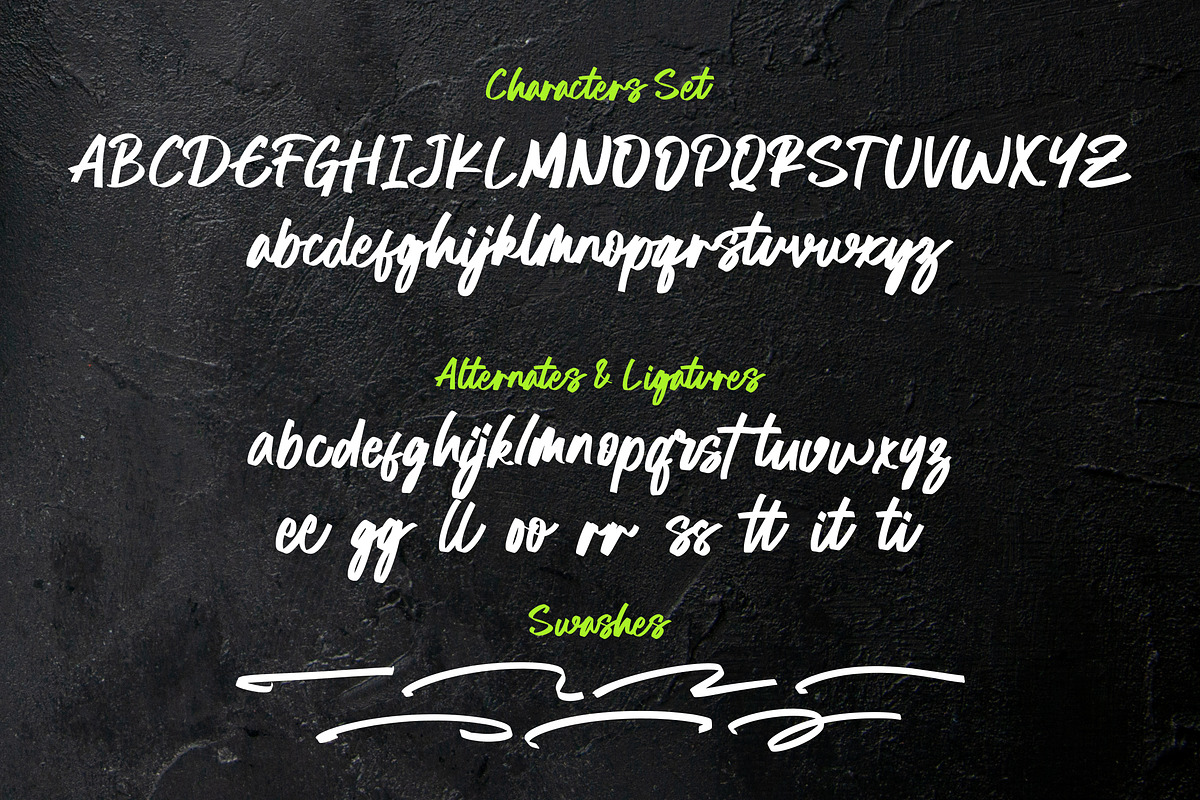 Characters Set
ABCDEFGHIJKLMNOOPQRSTUVWXYZ
abcdefghijklmnopqrstuvwxyz
Alternates & Ligatures
abcdefghijklmnopqrsttuvwxyz
ee gg ll oo rr ss tt it ti
Swashes